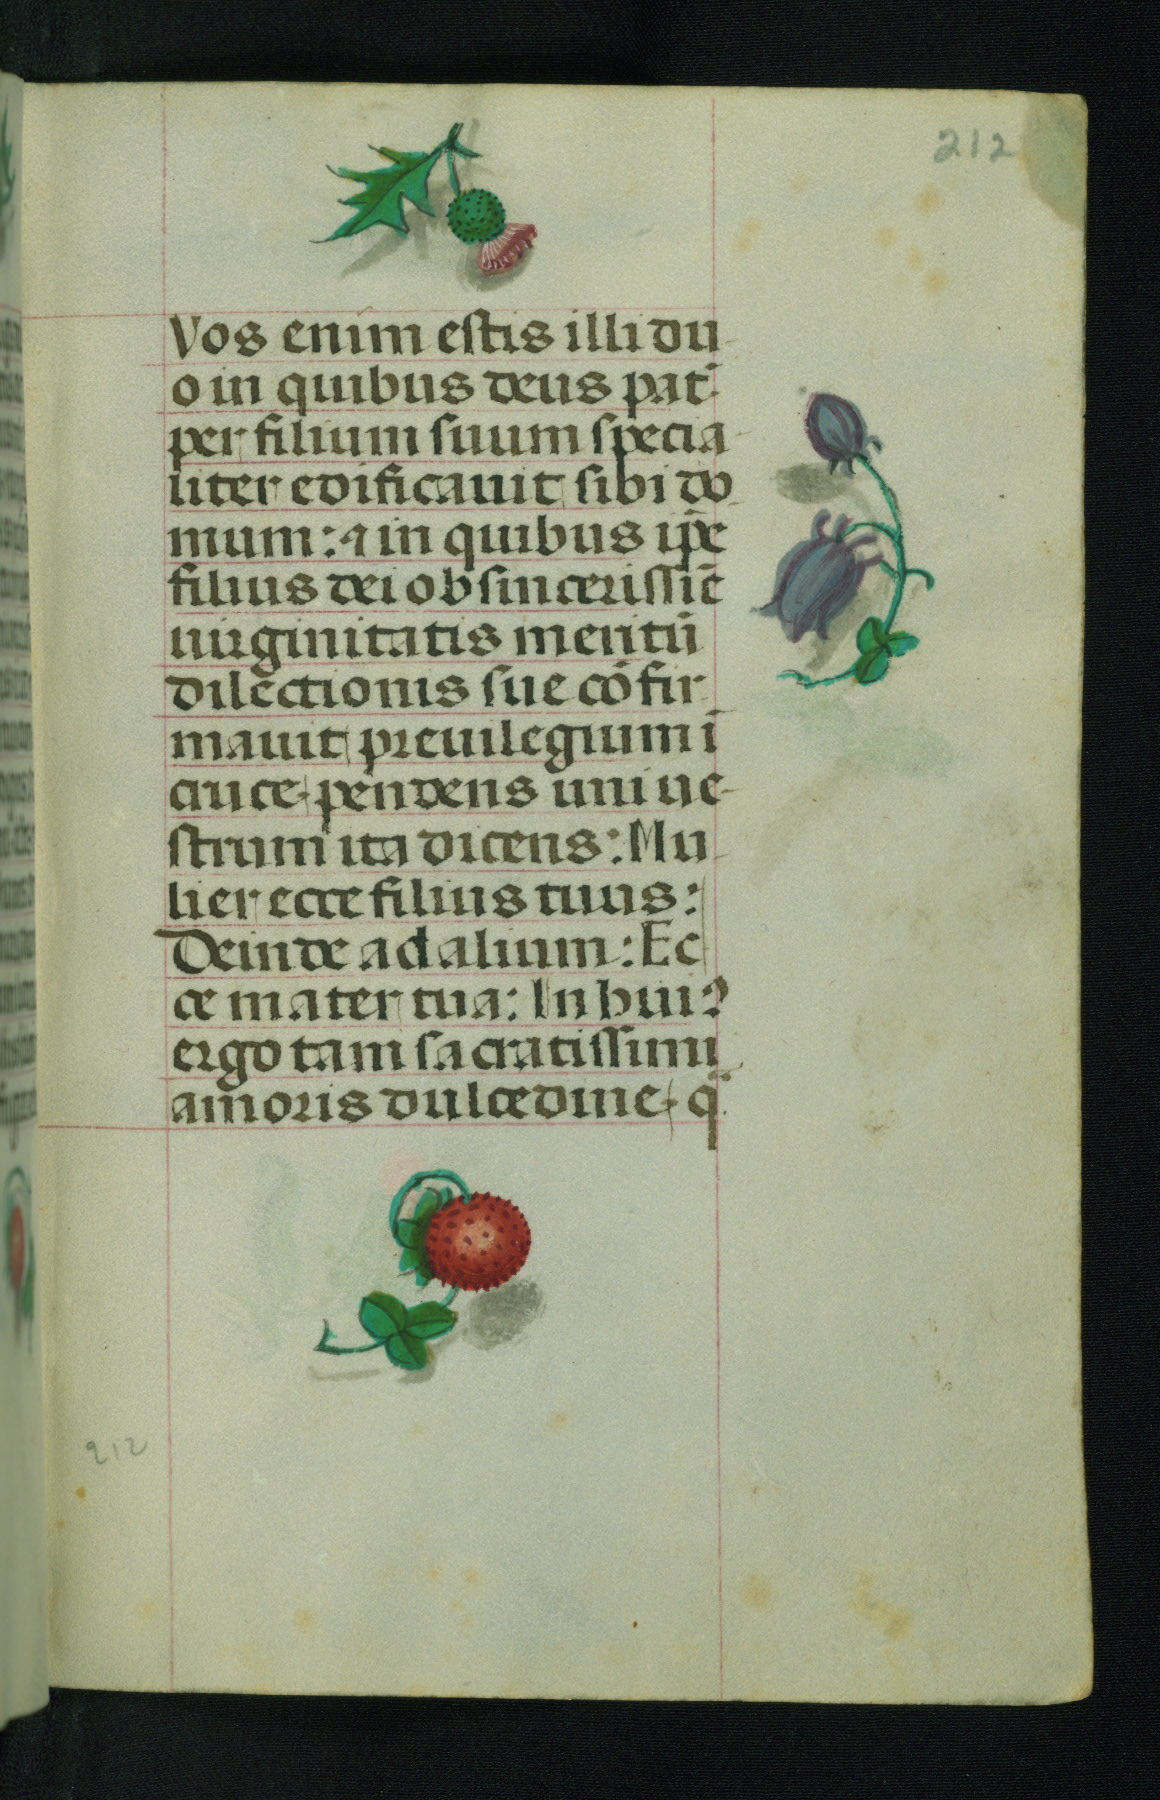 212
Vos enim estis illi du
o in quibus deus pat̄
per filium suum specia
liter edificauit sibi do
mum: ⁊ in quibus ip̄e
filius dei ob sincerissīē
uirginitatis meritū
dilectionis sue cōfir
mauit preuilegium ī
cruce pendens uni ue
strum ita dicens: Mu
lier ecce filius tuus:
Deinde ad alium: Ec
ce mater tua: In huiꝰ
ergo tam sacratissimi
amoris dulcedine q̄
212